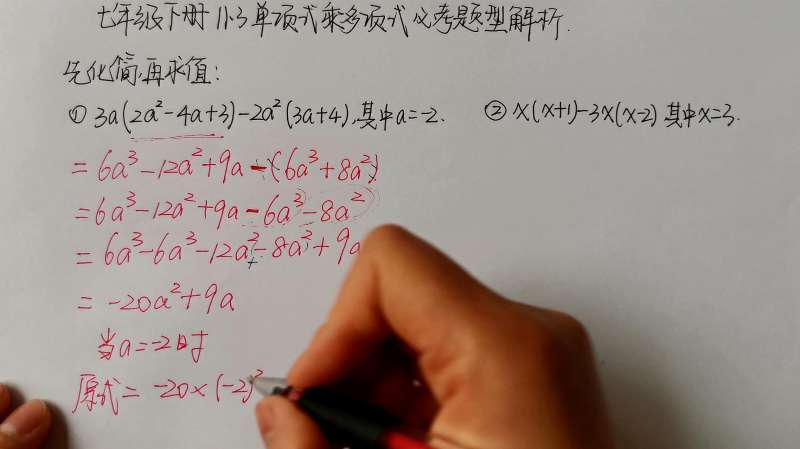 七年级下册 11.3 单项式乘多项式必考题型解析.
先化简,再求值:
① 3a(2a²-4a+3)-2a²(3a+4),其中a=-2. ② x(x+1)-3x(x-2) 其中x=3.
=6a³-12a²+9a-(6a³+8a²)
=6a³-12a²+9a-6a³-8a²
=6a³-6a³-12a²-8a²+9a
=-20a²+9a
当a=-2时
原式=-20×(-2)²